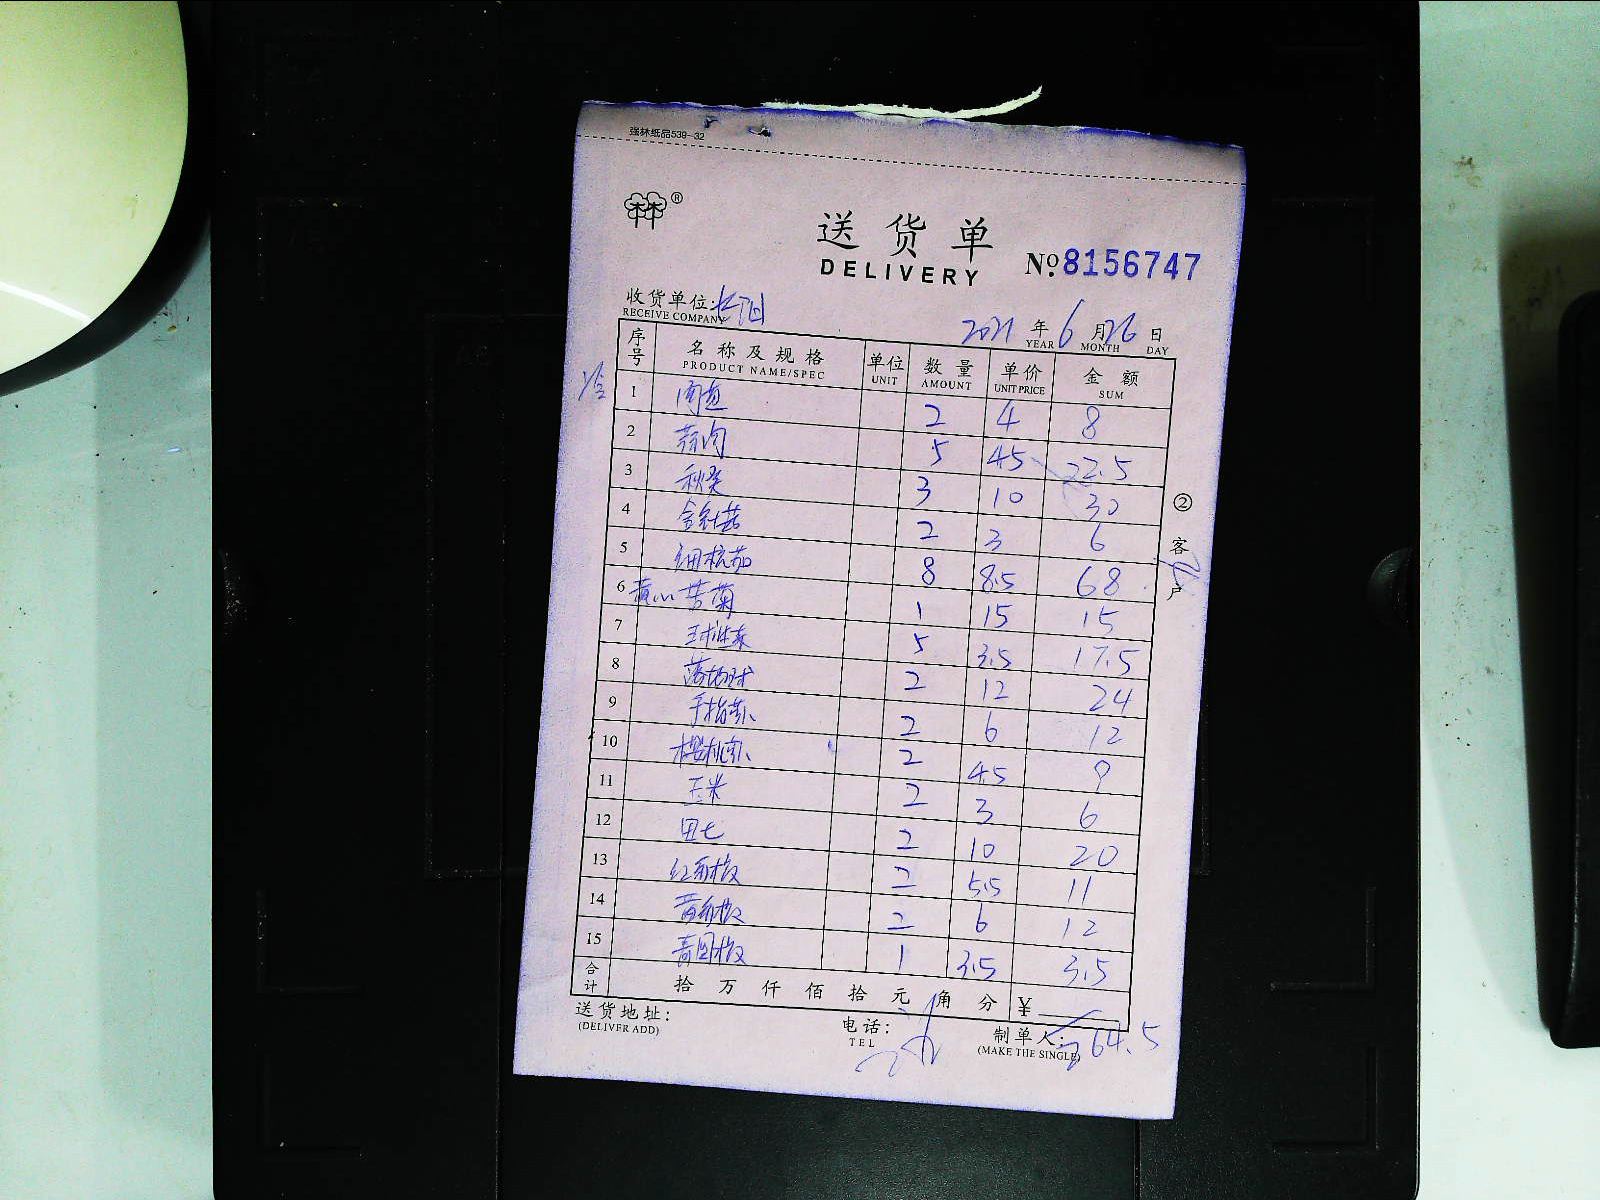 强林纸品539-32
®
送货单
DELIVERY
№8156747
收货单位:
RECEIVE COMPANY
2021年6月26日
YEAR MONTH DAY
序号 名称及规格 单位 数量 单价 金额
PRODUCT NAME/SPEC UNIT AMOUNT UNIT PRICE SUM
1 2 4 8
2 蒜肉 5 4.5 22.5
3 秋葵 3 10 30
4 金针菇 2 3 6
5 8 8.5 68
6 黄心苦菊 1 15 15
7 球生菜 5 3.5 17.5
8 2 12 24
9 手指 2 6 12
10 樱桃 2 4.5 9
11 玉米 2 3 6
12 田七 2 10 20
13 红彩椒 2 5.5 11
14 黄彩椒 2 6 12
15 青圆椒 1 3.5 3.5
合计 拾万仟佰拾元角分 ¥
264.5
送货地址:
(DELIVER ADD)
电话:
TEL
制单人:
(MAKE THE SINGLE)
②客户